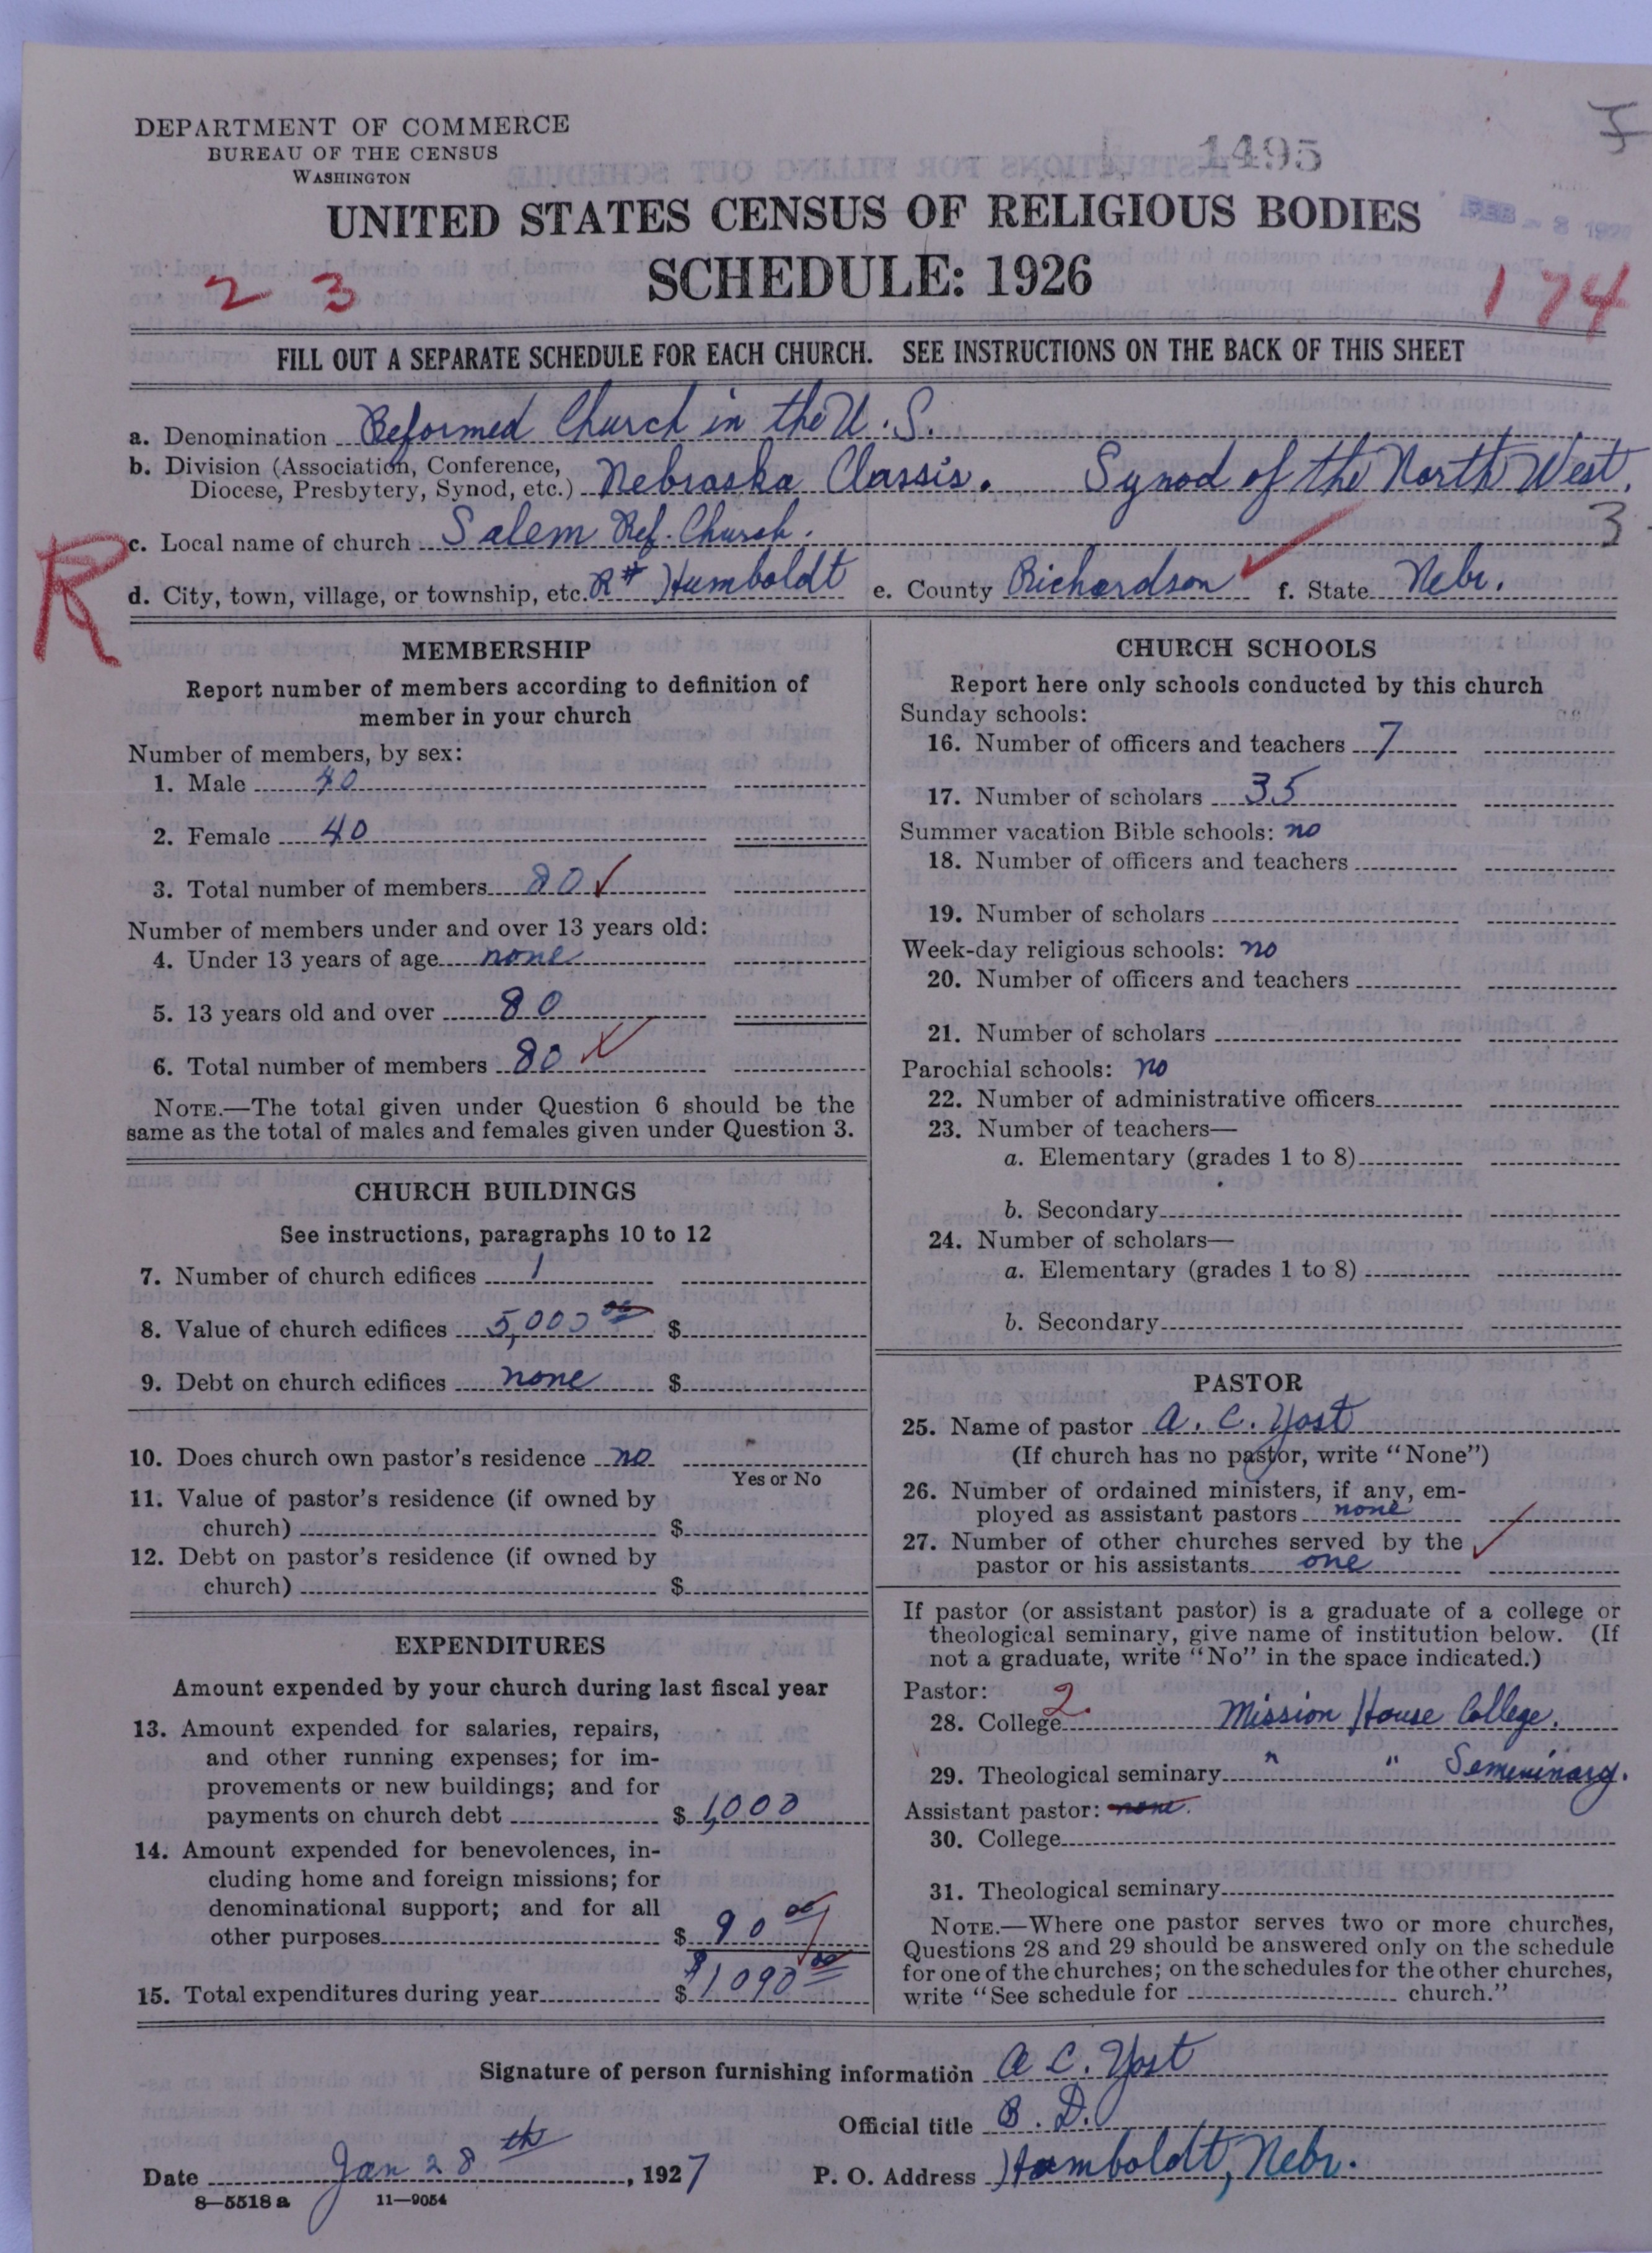 DEPARTMENT OF COMMERCE
BUREAU OF THE CENSUS
WASHINGTON
1495
UNITED STATES CENSUS OF RELIGIOUS BODIES
FEB - 8 192
SCHEDULE: 1926
2 3
174
FILL OUT A SEPARATE SCHEDULE FOR EACH CHURCH. SEE INSTRUCTIONS ON THE BACK OF THIS SHEET
a. Denomination Reformed Church in the U.S.
b. Division (Association, Conference, Diocese, Presbytery, Synod, etc.) Nebraska Classis. Synod of the North West.
c. Local name of church Salem Ref. Church. 3
R
d. City, town, village, or township, etc. R# Humboldt e. County Richardson f. State Nebr.
MEMBERSHIP
Report number of members according to definition of
member in your church
Number of members, by sex:
1. Male 40
2. Female 40
3. Total number of members 80 ✓
Number of members under and over 13 years old:
4. Under 13 years of age none
5. 13 years old and over 80
6. Total number of members 80 ✓
NOTE.—The total given under Question 6 should be the
same as the total of males and females given under Question 3.
CHURCH BUILDINGS
See instructions, paragraphs 10 to 12
7. Number of church edifices 1
8. Value of church edifices 5,000 00 $
9. Debt on church edifices none $
10. Does church own pastor's residence no
Yes or No
11. Value of pastor's residence (if owned by
church) $
12. Debt on pastor's residence (if owned by
church) $
EXPENDITURES
Amount expended by your church during last fiscal year
13. Amount expended for salaries, repairs,
and other running expenses; for im-
provements or new buildings; and for
payments on church debt $ 1,000
14. Amount expended for benevolences, in-
cluding home and foreign missions; for
denominational support; and for all
other purposes $ 90 00
15. Total expenditures during year $ $1090 00
CHURCH SCHOOLS
Report here only schools conducted by this church
Sunday schools:
16. Number of officers and teachers 7
17. Number of scholars 35
Summer vacation Bible schools: no
18. Number of officers and teachers
19. Number of scholars
Week-day religious schools: no
20. Number of officers and teachers
21. Number of scholars
Parochial schools: no
22. Number of administrative officers
23. Number of teachers—
a. Elementary (grades 1 to 8)
b. Secondary
24. Number of scholars—
a. Elementary (grades 1 to 8)
b. Secondary
PASTOR
25. Name of pastor A. C. Yost
(If church has no pastor, write "None")
26. Number of ordained ministers, if any, em-
ployed as assistant pastors none
27. Number of other churches served by the
pastor or his assistants one
If pastor (or assistant pastor) is a graduate of a college or
theological seminary, give name of institution below. (If
not a graduate, write "No" in the space indicated.)
Pastor:
28. College 2. Mission House College.
29. Theological seminary " " Semininary.
Assistant pastor: none.
30. College
31. Theological seminary
NOTE.—Where one pastor serves two or more churches,
Questions 28 and 29 should be answered only on the schedule
for one of the churches; on the schedules for the other churches,
write "See schedule for church."
Signature of person furnishing information A C. Yost
Official title B. D.
Date Jan 28th, 1927 P. O. Address Humboldt, Nebr.
8—5518 a 11—9054